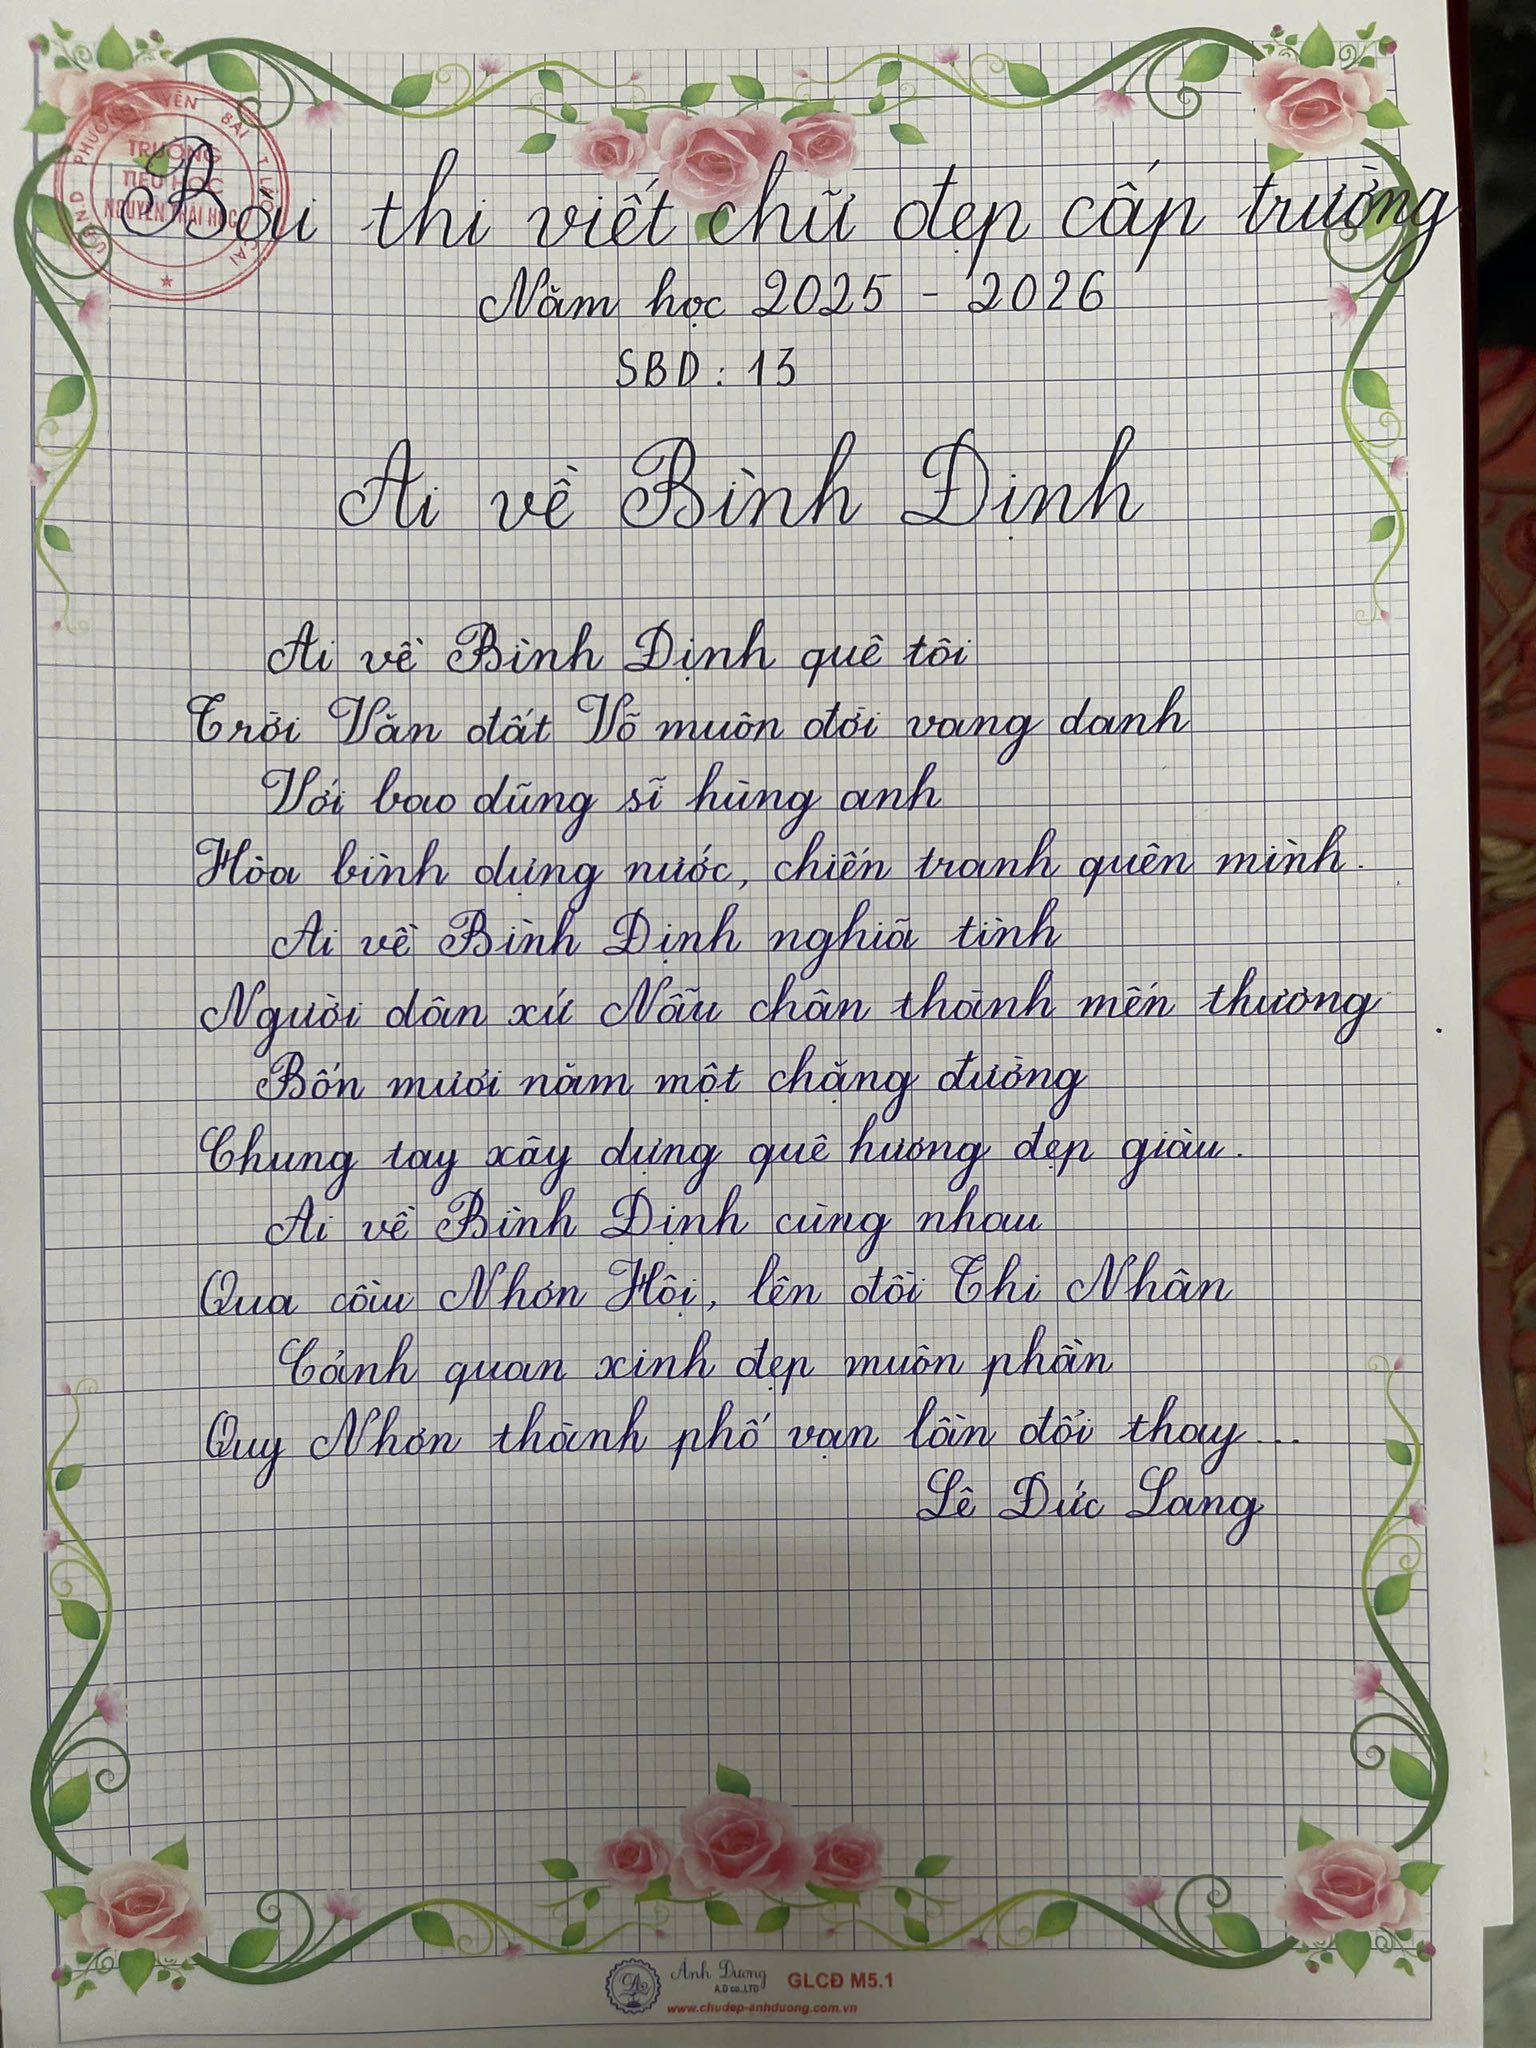 UBND PHƯỜNG YÊN BÁI T. LÀO CAI
TRƯỜNG
TIỂU HỌC
NGUYỄN THÁI HỌC
Bài thi viết chữ đẹp cấp trường
Năm học 2025 - 2026
SBD: 13
Ai về Bình Định
Ai về Bình Định quê tôi
Trời Văn đất Võ muôn đời vang danh
Với bao dũng sĩ hùng anh
Hòa bình dựng nước, chiến tranh quên mình.
Ai về Bình Định nghĩa tình
Người dân xứ Nẫu chân thành mến thương
Bốn mươi năm một chặng đường
Chung tay xây dựng quê hương đẹp giàu.
Ai về Bình Định cùng nhau
Qua cầu Nhơn Hội, lên đồi Thi Nhân
Cảnh quan xinh đẹp muôn phần
Quy Nhơn thành phố vạn lần đổi thay...
Lê Đức Lang
Ánh Dương
A.D co.,LTD
GLCĐ M5.1
www.chudep-anhduong.com.vn